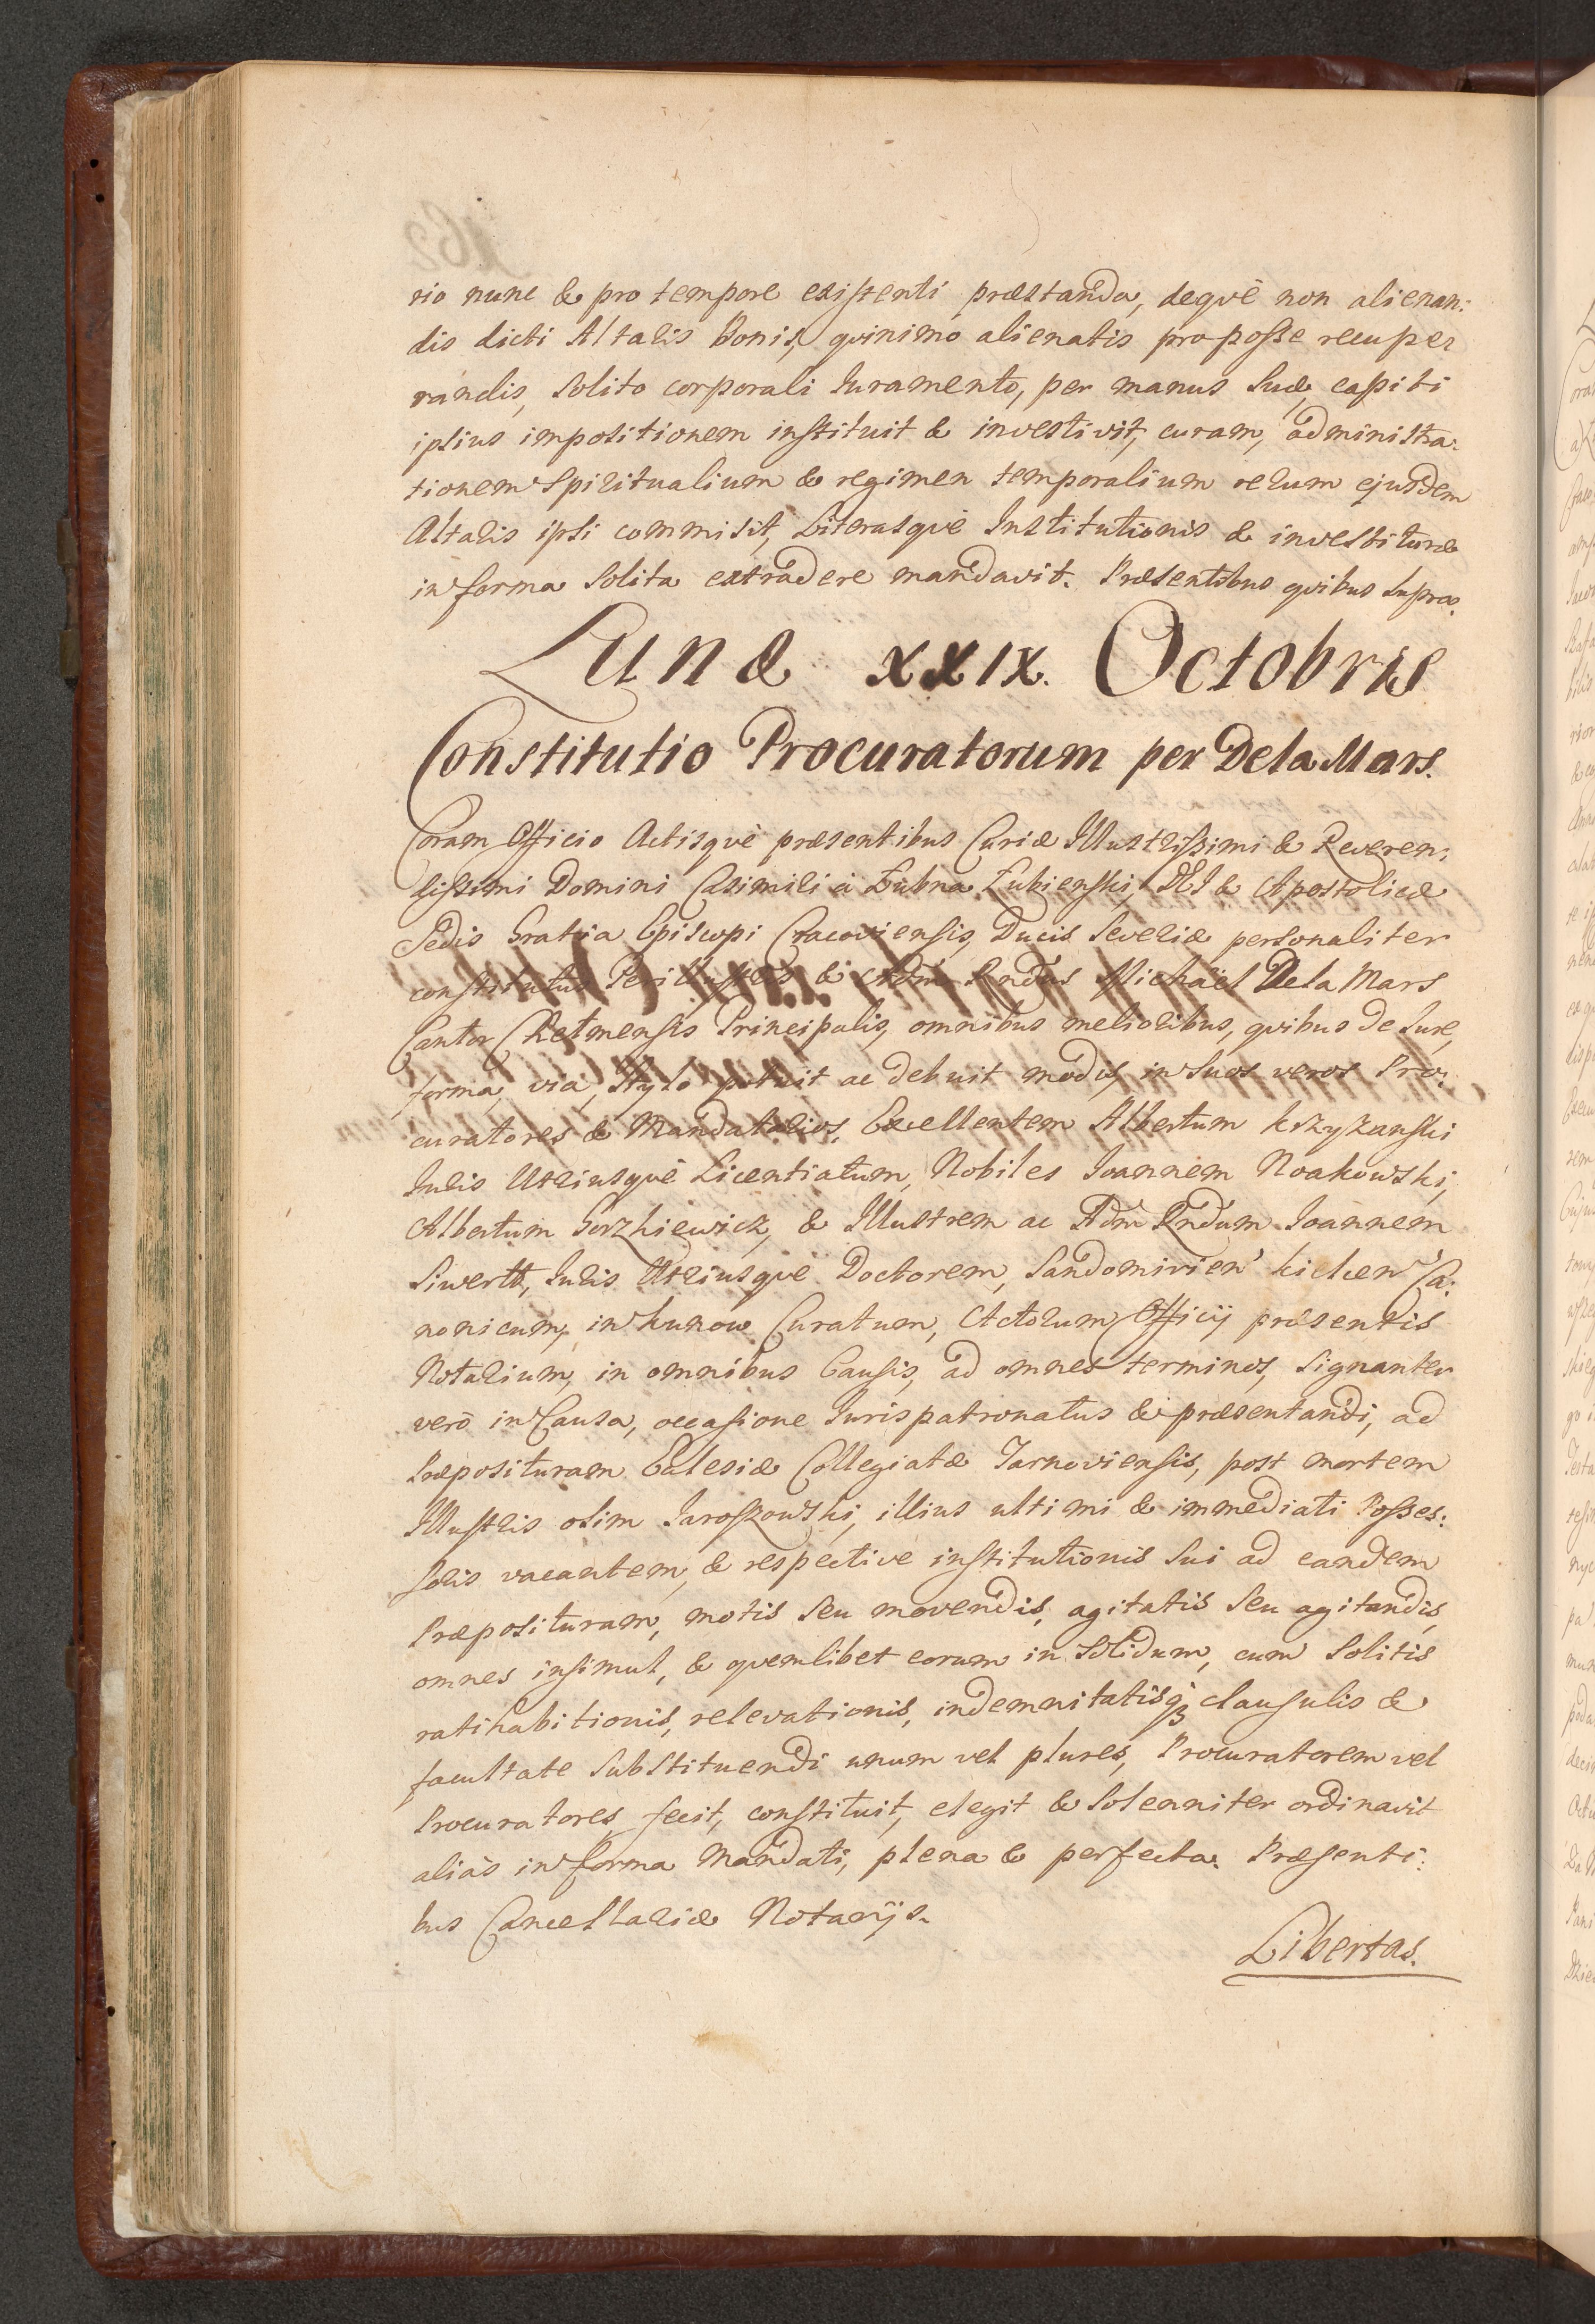 rio nunc & pro tempore existenti præstanda, deqvè non alienan:
dis dicti Altaris Bonis, qvinimo alienatis pro posse recupe
randis, solito corporali Juramento, per manus suæ, capiti
ipsius impositionem instituit & investivit, curam, administra:
tionem Spiritualium & regimen temporalium rerum ejusdem
Altaris ipsi commisit, Literasqvè Institutionis & investituræ
in forma solita extradere mandavit. Præsentibus qvibus supra.
Lunæ XXIX. Octobris
Constitutio Procuratorum per De la Mars.
Coram Officio Actisqvè præsentibus Curiæ Illustrissimi & Reveren:
dissimi Domini Casimiri à Łubna Łubienski, DEI & Apostolicæ
Sedis Gratia Episcopi Cracoviensis, Ducis Severiæ personaliter
constitutus Perillustris & Adm Rndus Michaël De la Mars
Cantor Chelmensis Principalis, omnibus melioribus, qvibus de Jure,
forma, via, stylo potuit ac debuit modis, in suos veros Pro:
curatores & Mandatarios, Excellentem Albertum Krzyzanski
Juris Utriusqvè Licentiatum, Nobiles Joannem Noakowski,
Albertum Gorzkiewicz, & Illustrem ac Adm Rndum Joannem
Siwertt, Juris Utriusqvè Doctorem, Sandomirien' Kielcen' Ca:
nonicum, in Kunow Curatum, Actorum Officij præsentis
Notarium, in omnibus Causis, ad omnes terminos, signanter
verò in Causa, occasione Jurispatronatus & præsentandi, ad
Præposituram Eclesiæ Collegiatæ Tarnoviensis, post mortem
Illustris olim Jaroszowski, illius ultimi & immediati Posses:
soris vacantem, & respective institutionis sui ad eandem
Præposituram, motis seu movendis, agitatis seu agitandis,
omnes insimul, & qvemlibet eorum in solidum, cum solitis
ratihabitionis, relevationis, indemnitatisq; clausulis &
facultate substituendi unum vel plures, Procuratorem vel
Procuratores, fecit, constituit, elegit & solenniter ordinavit
aliàs in forma Mandati, plena & perfecta. Præsenti:
bus Cancellariæ Notarijs.
Libertas.